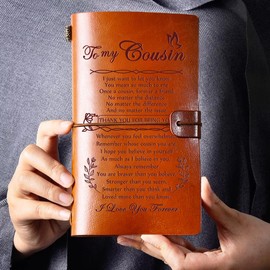 To my Cousin
I just want to let you know
Once a cousin, forever a friend
No matter the distance
No matter the difference
And no matter the issue
THANK YOU FOR BEING
Whenever you feel overwhelmed
Remember whose cousin you are
I hope you believe in yourself
As much as I believe in you
Always remember
You are braver than you believe
Stronger than you seem
Smarter than you think and
Loved more than you know
I Love You Forever